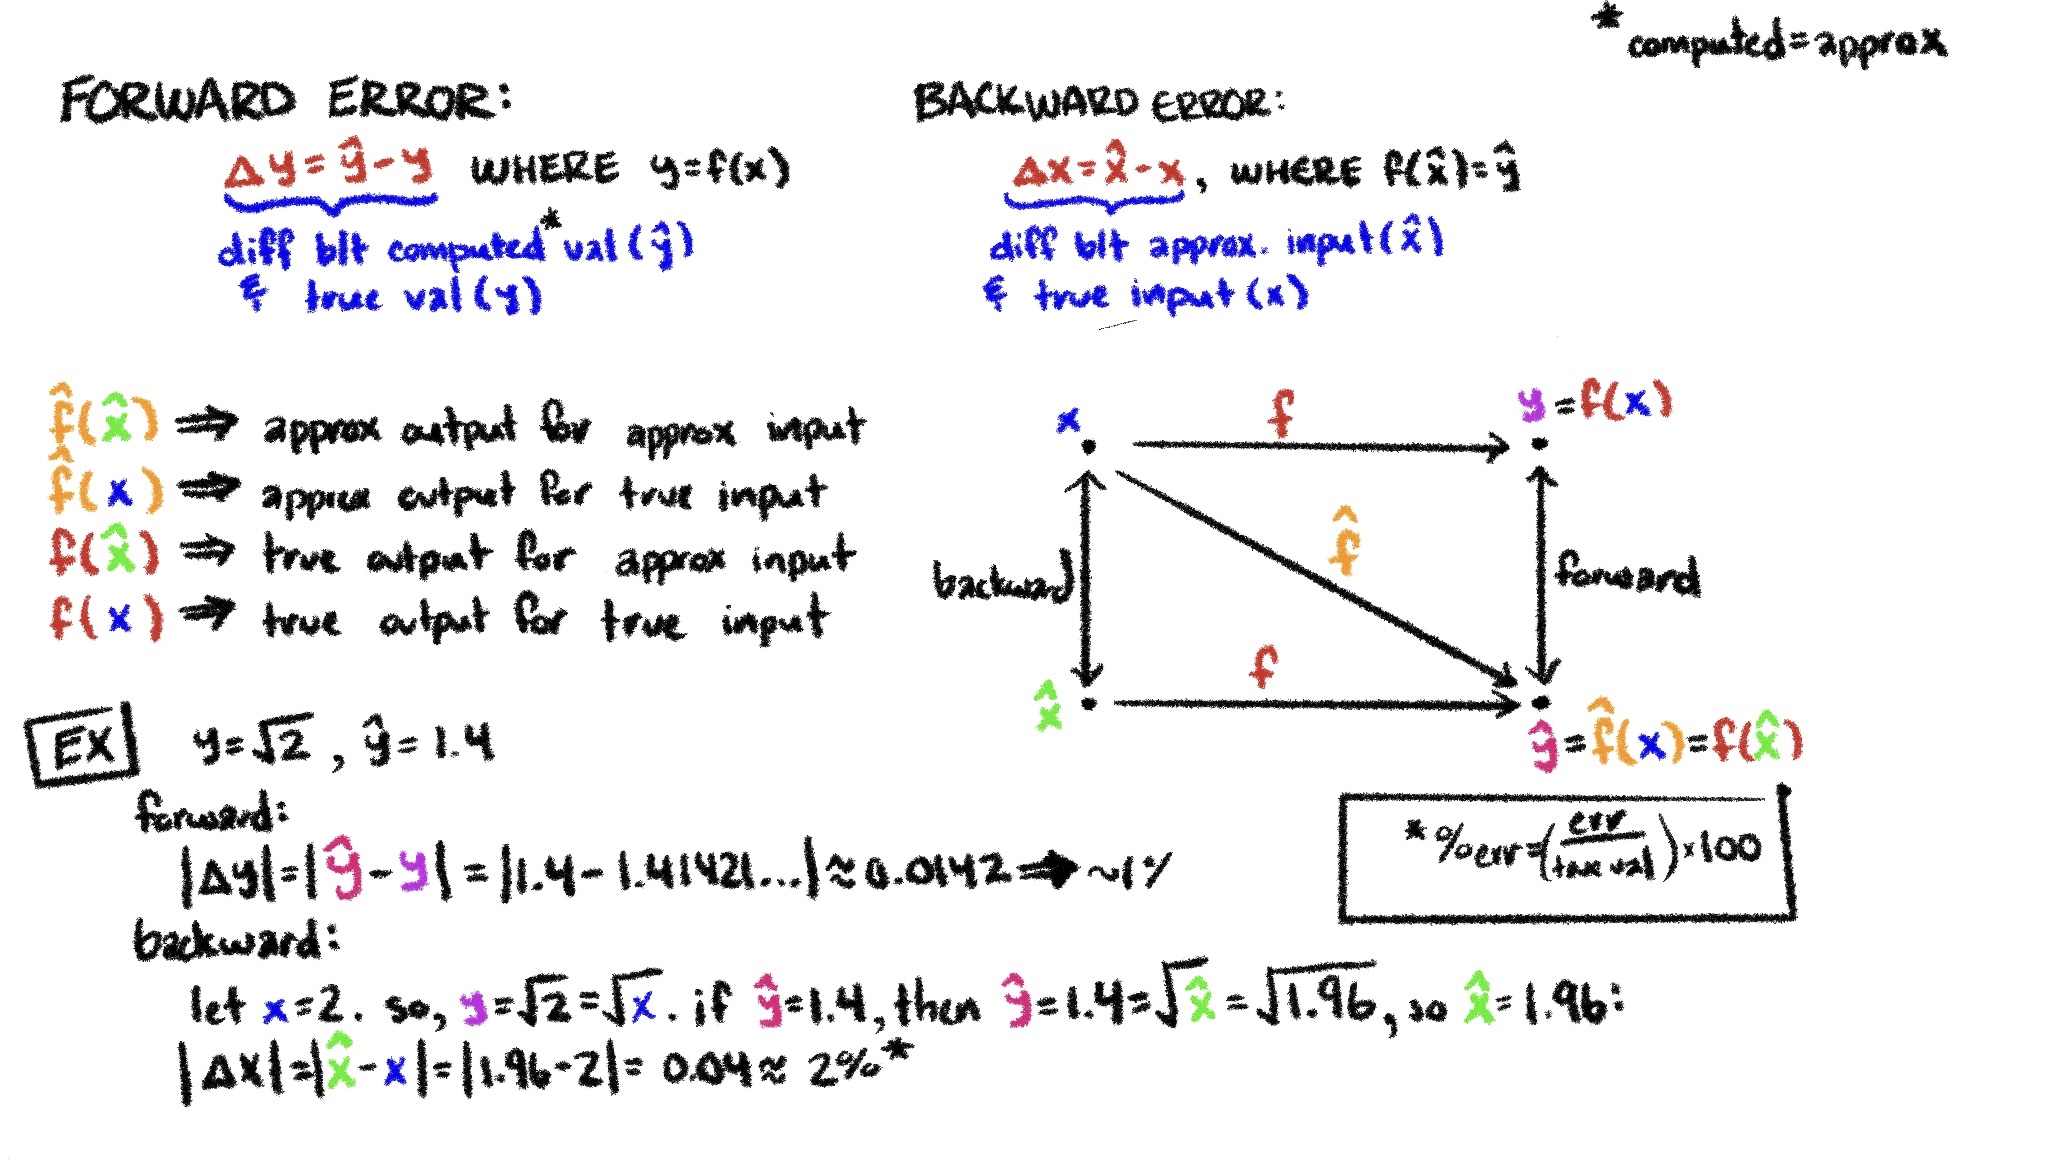 *computed=approx
FORWARD ERROR:
Δy=ŷ-y WHERE y=f(x)
diff b/t computed* val(ŷ)
& true val(y)
BACKWARD ERROR:
Δx=x̂-x, WHERE f(x̂)=ŷ
diff b/t approx. input(x̂)
& true input(x)
f̂(x̂) ⇒ approx output for approx input
f̂(x) ⇒ approx output for true input
f(x̂) ⇒ true output for approx input
f(x) ⇒ true output for true input
x
f
y=f(x)
backward
f̂
forward
x̂
f
ŷ=f̂(x)=f(x̂)
*%err=(err/true val)×100
EX
y=√2, ŷ=1.4
forward:
|Δy|=|ŷ-y|=|1.4-1.41421...|≈0.0142⇒~1%
backward:
let x=2. so, y=√2=√x. if ŷ=1.4, then ŷ=1.4=√x̂=√1.96, so x̂=1.96:
|Δx|=|x̂-x|=|1.96-2|=0.04≈2%*